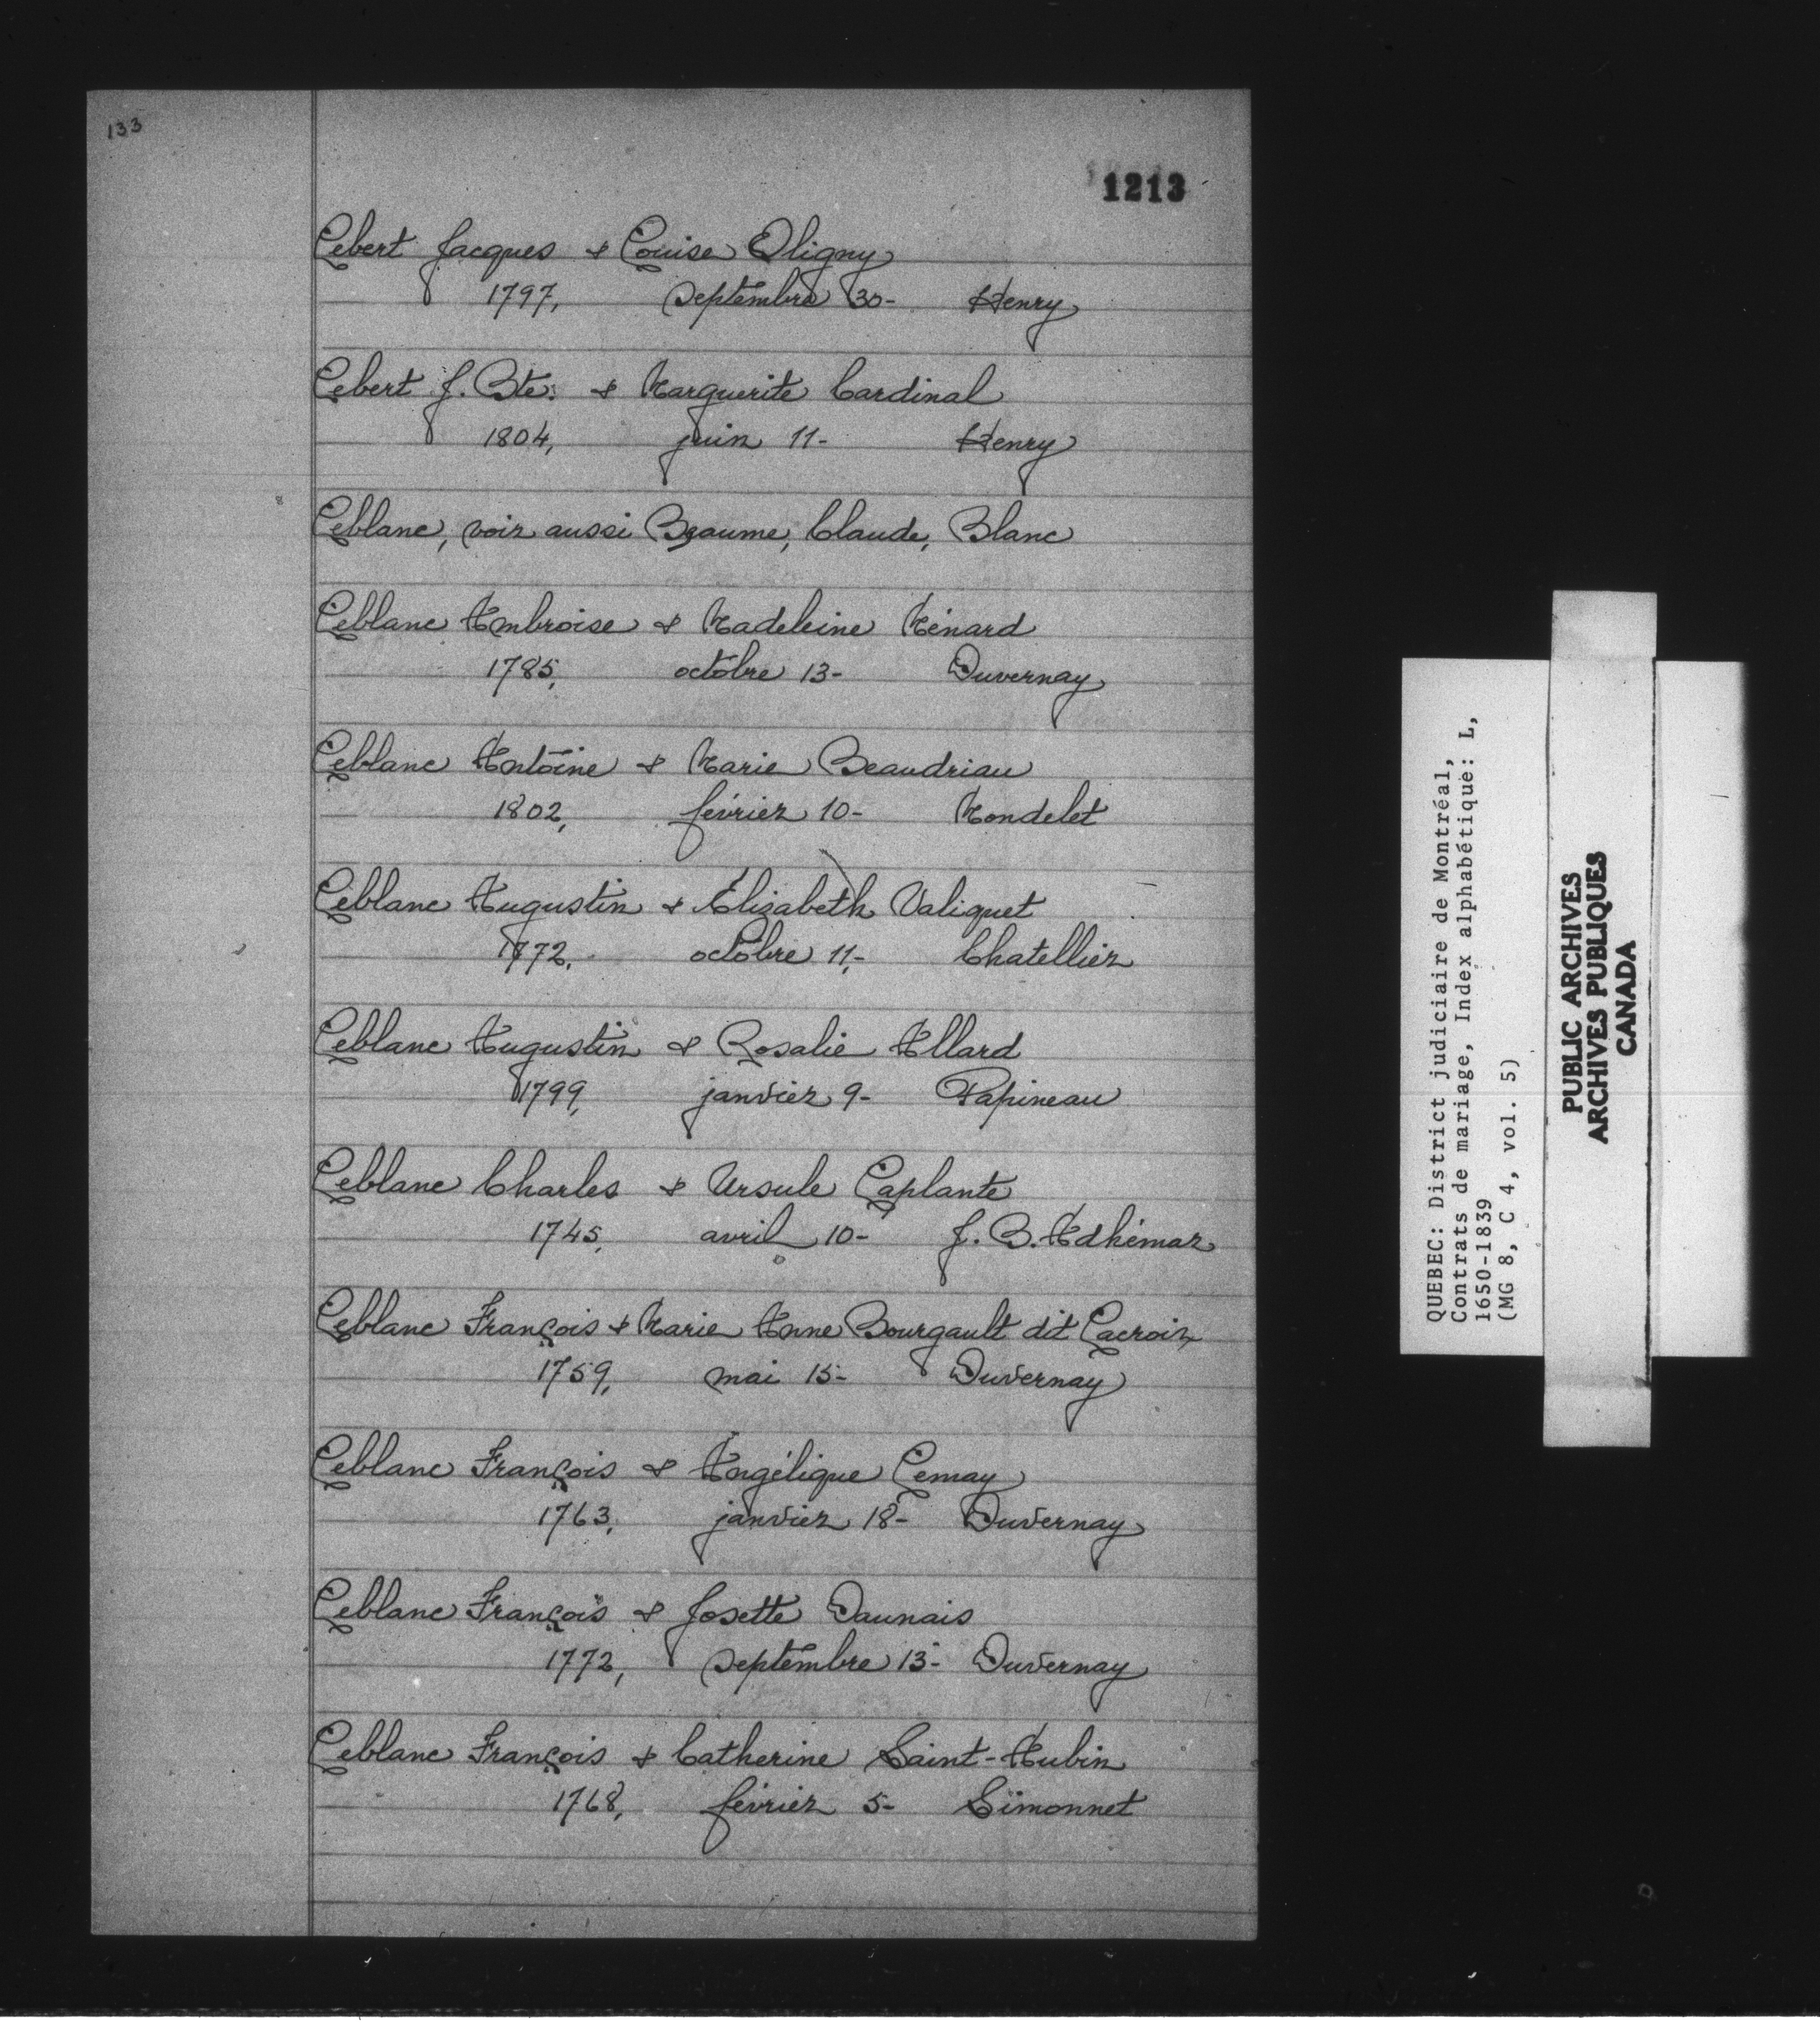 133
1213
Lebert Jacques & Louise Oligny
1797, Septembre 30- Henry
Lebert J. Bte. & Marguerite Cardinal
1804, juin 11- Henry
Leblanc, voir aussi Beaume, Claude, Blanc
Leblanc Ambroise & Madeleine Ménard
1785, octobre 13- Duvernay
Leblanc Antoine & Marie Beaudriau
1802, février 10- Mondelet
Leblanc Augustin & Élizabeth Valiquet
1772, octobre 11,- Chatellier
Leblanc Augustin & Rosalie Allard
1799, janvier 9- Papineau
Leblanc Charles & Ursule Laplante
1745, avril 10- J. B. Adhémar
Leblanc François & Marie Anne Bourgault dit Lacroix
1759, mai 15- Duvernay
Leblanc François & Angélique Lemay
1763, janvier 18- Duvernay
Leblanc François & Josette Daunais
1772, Septembre 13- Duvernay
Leblanc François & Catherine Saint-Aubin
1768, février 5- Simonnet
QUEBEC: District judiciaire de Montréal,
Contrats de mariage, Index alphabétique: L,
1650-1839
(MG 8, C 4, vol. 5)
PUBLIC ARCHIVES
ARCHIVES PUBLIQUES
CANADA